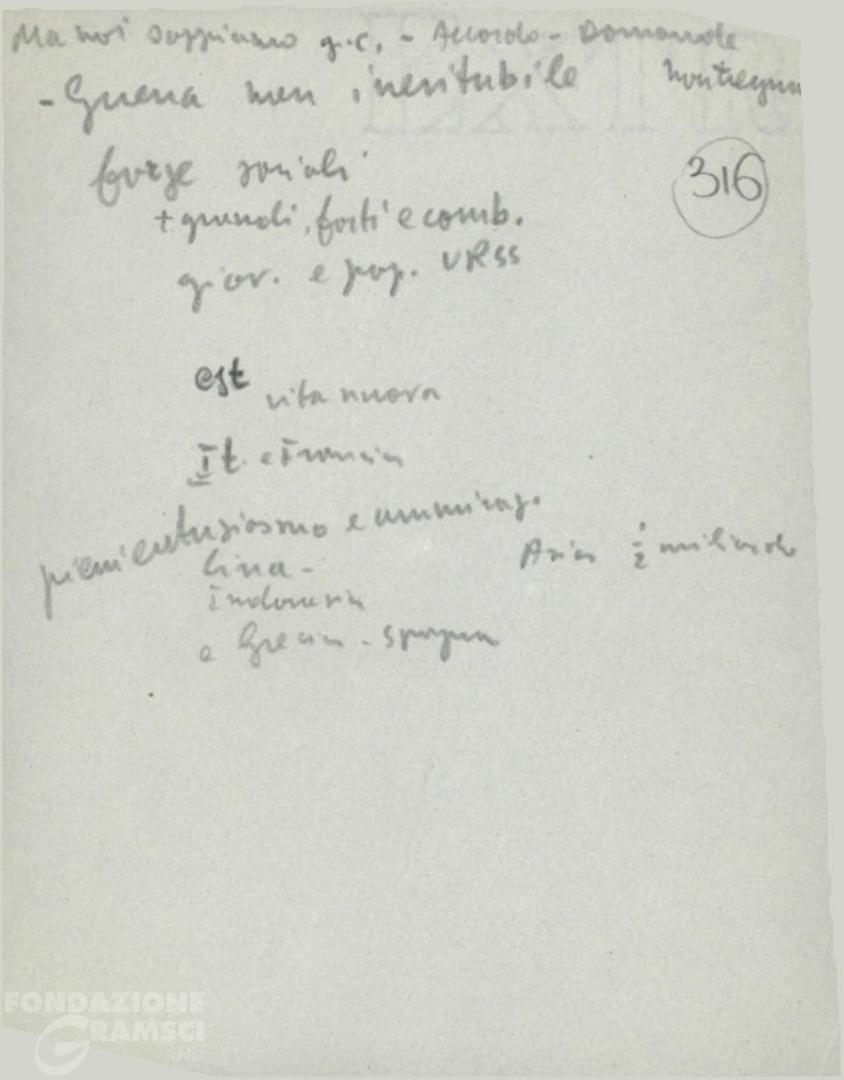 Ma noi sappiamo q.c. - Accordo - Domande
- Guerra non inevitabile
316
forze sociali
+ grandi, forti e comb.
giov. e pop. URSS
est
vita nuova
It. e Francia
pieni entusiasmo e ammiraz.
Asia ½ miliardo
Cina -
Indonesia
e Grecia - Spagna
FONDAZIONE
GRAMSCI
onlus